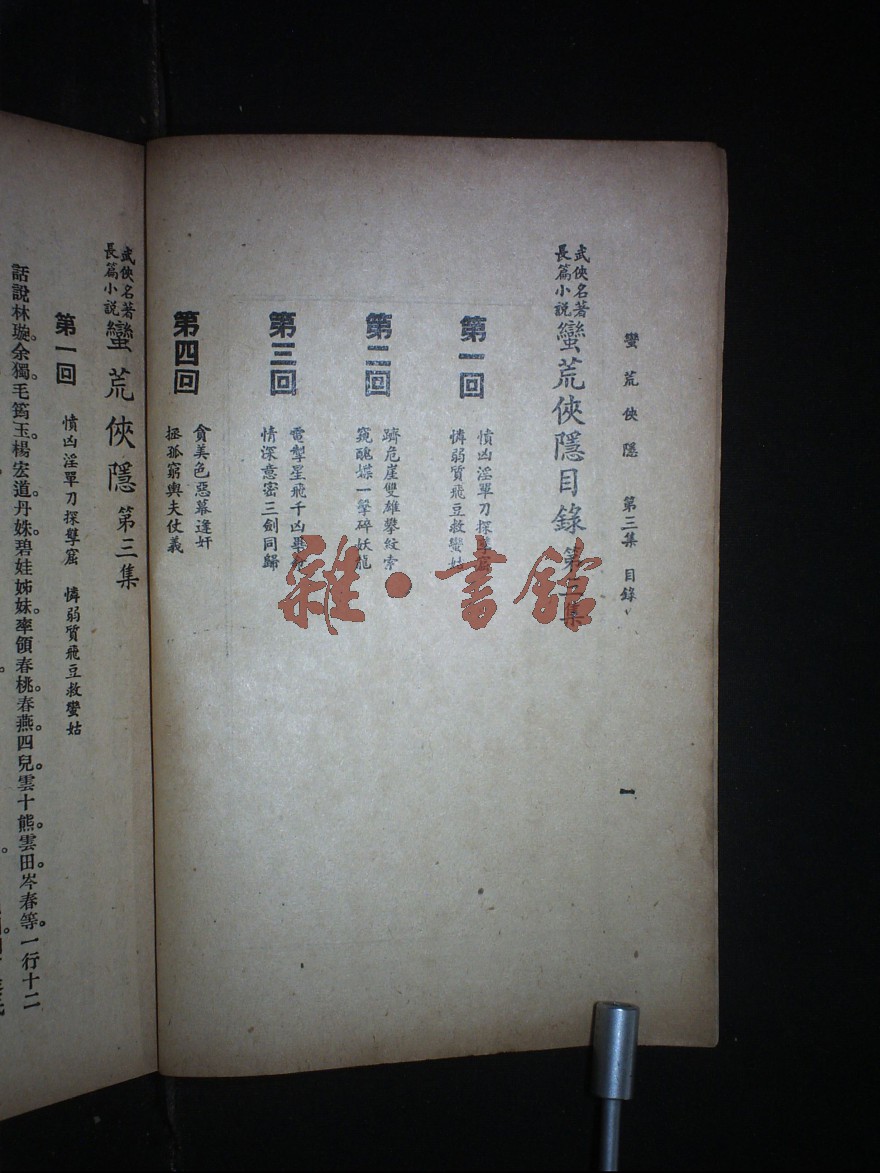 蠻荒俠隱 第三集 目錄
一
武俠名著
長篇小說
蠻荒俠隱目錄 第三集
第一回
憤凶淫單刀探孽窟
憐弱質飛豆救蠻姑
第二回
躋危崖雙雄攀紋索
窺醜媒一擊碎妖龍
第三回
電掣星飛千凶畢命
情深意密三劍同歸
第四回
貪美色惡幕逢奸
拯孤窮輿夫仗義
雜·書館
武俠名著
長篇小說
蠻荒俠隱 第三集
第一回 憤凶淫單刀探孽窟 憐弱質飛豆救蠻姑
話說林璇。余獨。毛筠玉。楊宏道。丹姝碧娃姊妹。率領春桃。春燕。四兒。雲十熊。雲田。岑春等。一行十二